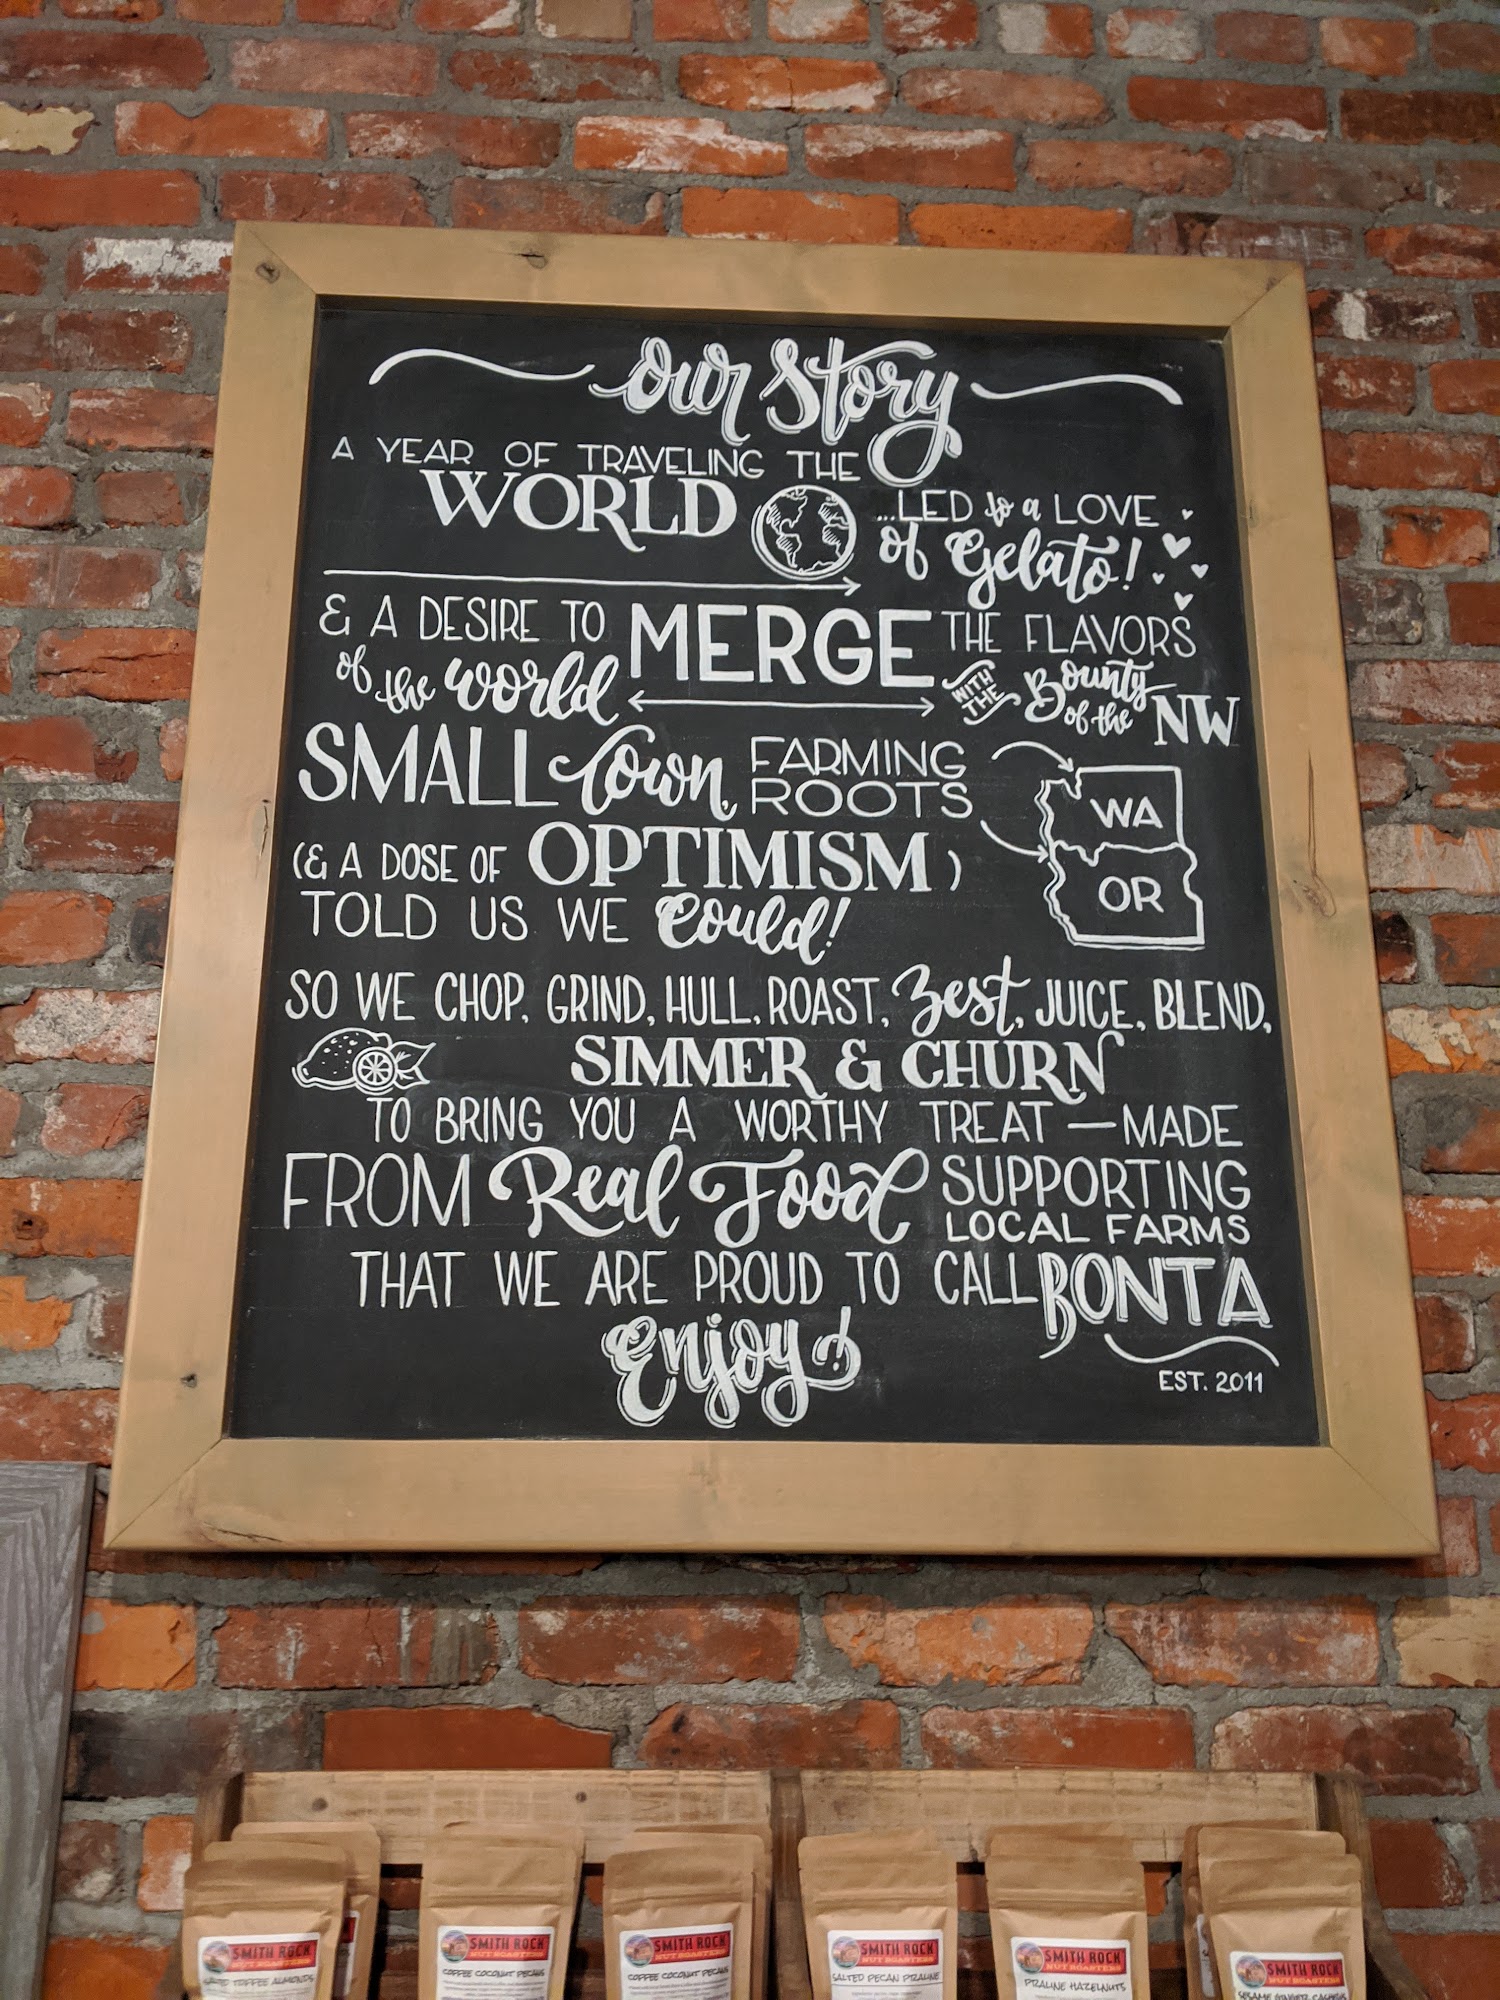 Our Story
A YEAR OF TRAVELING THE
WORLD
...LED to a LOVE
of Gelato!
& A DESIRE TO MERGE THE FLAVORS
of the world
WITH THE Bounty of the NW
SMALL town, FARMING
ROOTS
WA
(& A DOSE OF OPTIMISM)
OR
TOLD US WE could!
SO WE CHOP, GRIND, HULL, ROAST, Zest, JUICE, BLEND,
SIMMER & CHURN
TO BRING YOU A WORTHY TREAT — MADE
FROM Real Food SUPPORTING
LOCAL FARMS
THAT WE ARE PROUD TO CALL BONTA
Enjoy!
EST. 2011
SMITH ROCK
NUT ROASTERS
SALTED TOFFEE ALMONDS
SMITH ROCK
NUT ROASTERS
COFFEE COCONUT PECANS
SMITH ROCK
NUT ROASTERS
COFFEE COCONUT PECANS
SMITH ROCK
NUT ROASTERS
SALTED PECAN PRALINE
SMITH ROCK
NUT ROASTERS
PRALINE HAZELNUTS
SMITH ROCK
NUT ROASTERS
SESAME GINGER CASHEWS